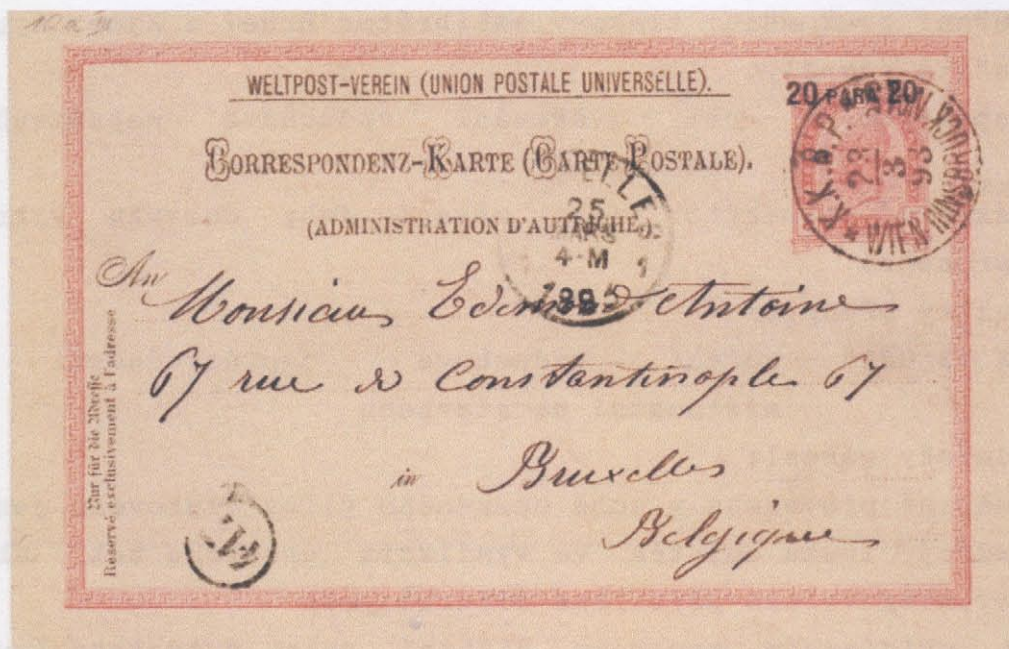 WELTPOST-VEREIN (UNION POSTALE UNIVERSELLE).
20 PARA 20
CORRESPONDENZ-KARTE (CARTE POSTALE).
(ADMINISTRATION D'AUTRICHE).
WIEN-RINGSTR
23
3
93
ELLE
25
MARS
4-M
1 1
An Monsieur Edmond Antoine
67 rue de Constantinople 67
in Bruxelles
Belgique
Nur für die Adresse
Réservé exclusivement à l'adresse